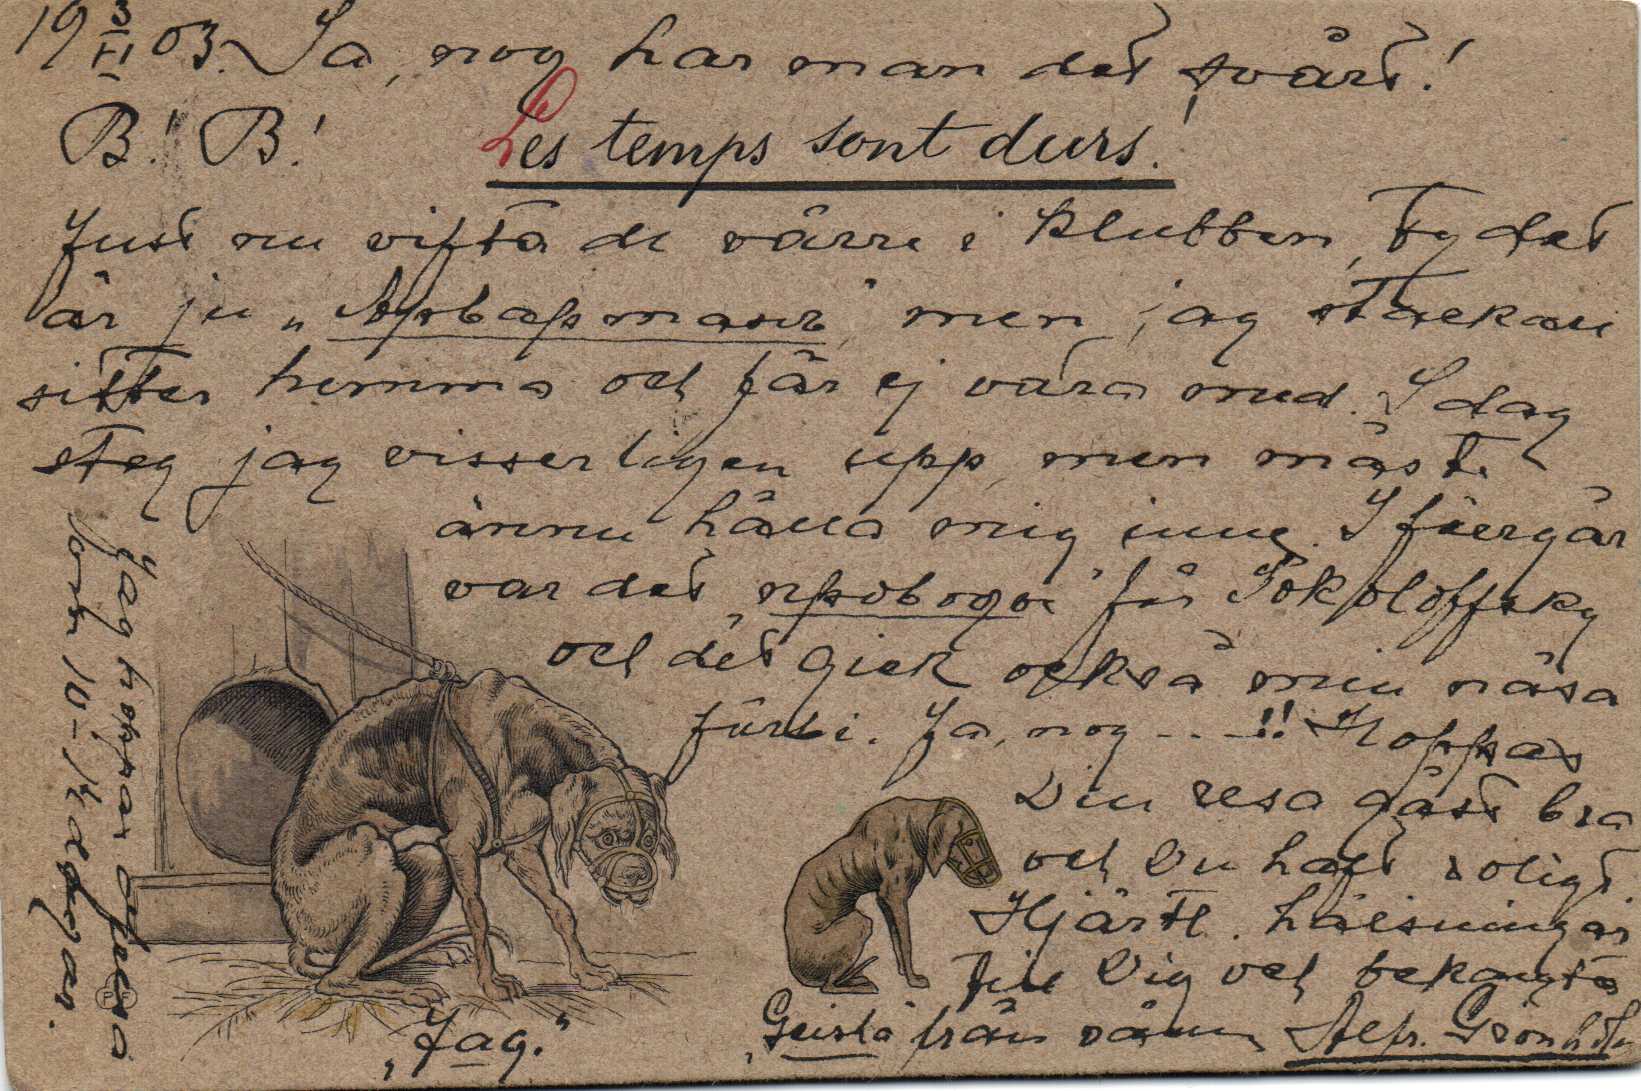 19 3/II 03. Ja, nog har man det svårt!
B! B! Les temps sont durs!
Just nu vifta de värre i klubben, ty det
är ju „ men jag stackare
sitter hemma och får ej vara med. I dag
steg jag visserligen upp, men måste
ännu hålla mig inne. I förrgår
var det " för Sokoloffsky
och det gick också min näsa
förbi. Ja, nog - - - !! Hoppas
Din resa gått bra
och Du haft roligt.
Hjärtl. hälsningar
till Dig och bekanta
från vännen Alfr. Grönholm
„Jag."
Jag hoppas
som 10-12